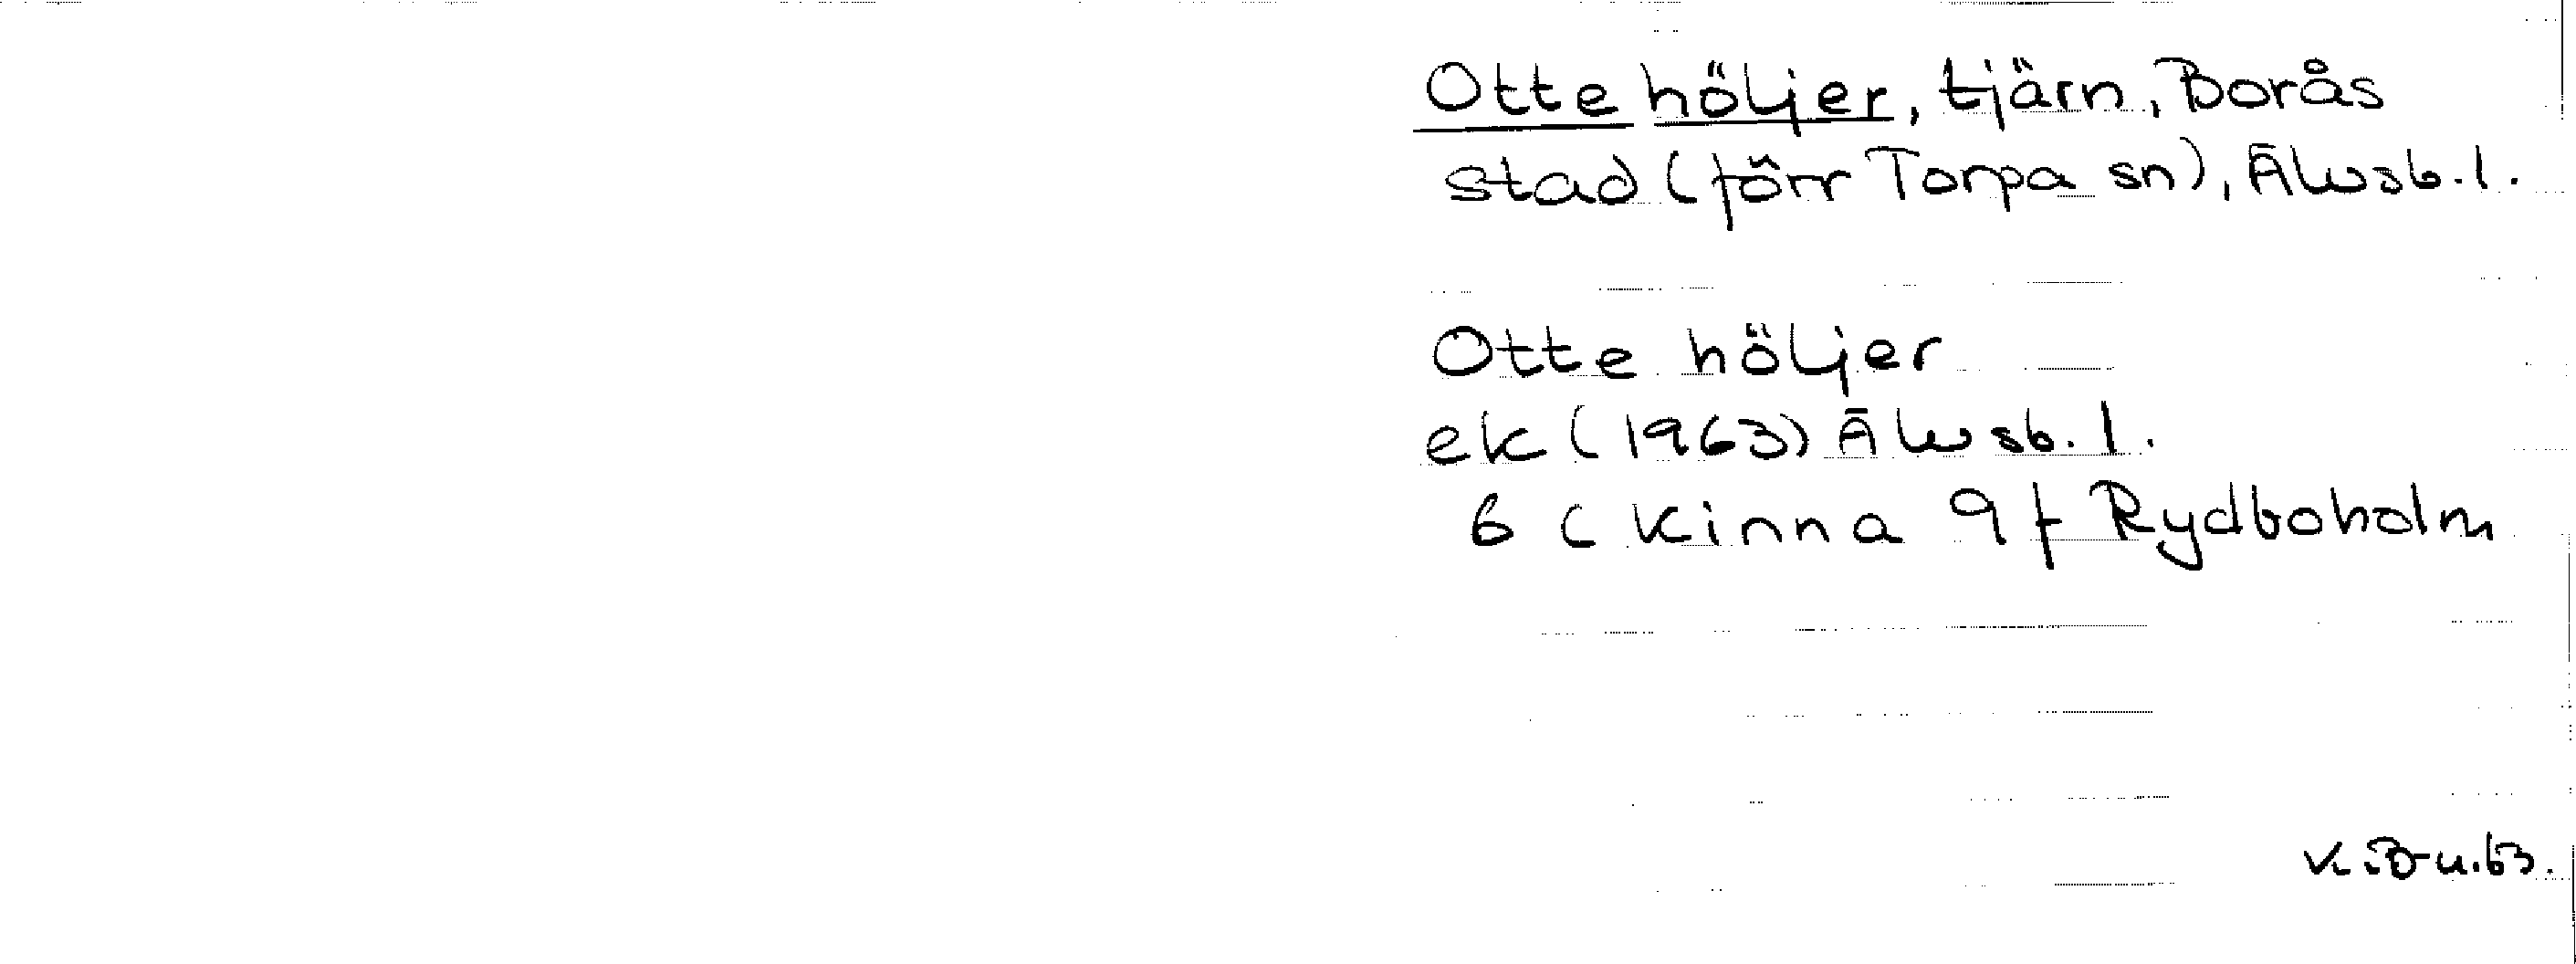 Otte höljer, tjärn, Borås
stad (förr Torpa sn), Älvsb. l.
Otte höljer
ek (1963) Älvsb. l.
6 C Kinna 9 f Rydboholm